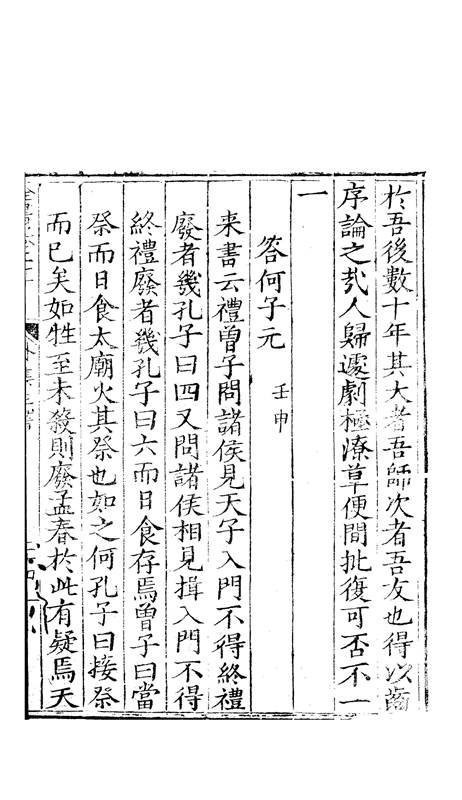 於吾後數十年其大者吾師次者吾友也得以齒
序論之㢤人歸遽劇極潦草便間批復可否不一
一
答何子元 壬申
来書云禮曾子問諸侯見天子入門不得終禮
廢者幾孔子曰四又問諸侯相見揖入門不得
終禮廢者幾孔子曰六而日食存焉曾子曰當
祭而日食太廟火其祭也如之何孔子曰接祭
而已矣如牲至未殺則廢孟春於此有疑焉天